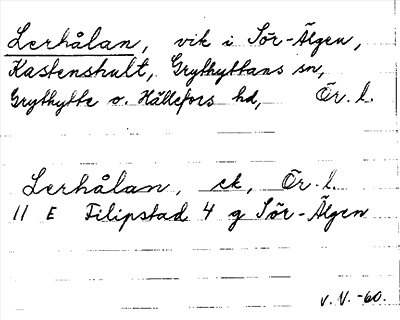 Lerhålan, vik i Sör-Älgen,
Kastenshult, Grythyttans sn,
Grythytte o. Hällefors hd, Ör. l.
Lerhålan, ek, Ör. l.
11 E Filipstad 4 g Sör-Älgen
V. V. -60.